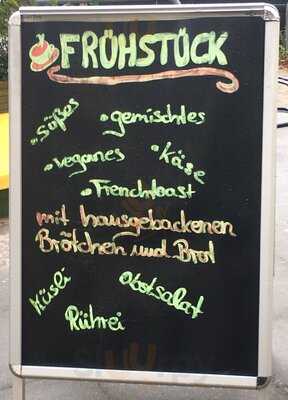 FRÜHSTÜCK
• Süßes
• gemischtes
• veganes
• Käse
• Frenchtoast
mit hausgebackenen
Brötchen und Brot
Müsli
Obstsalat
Rührei